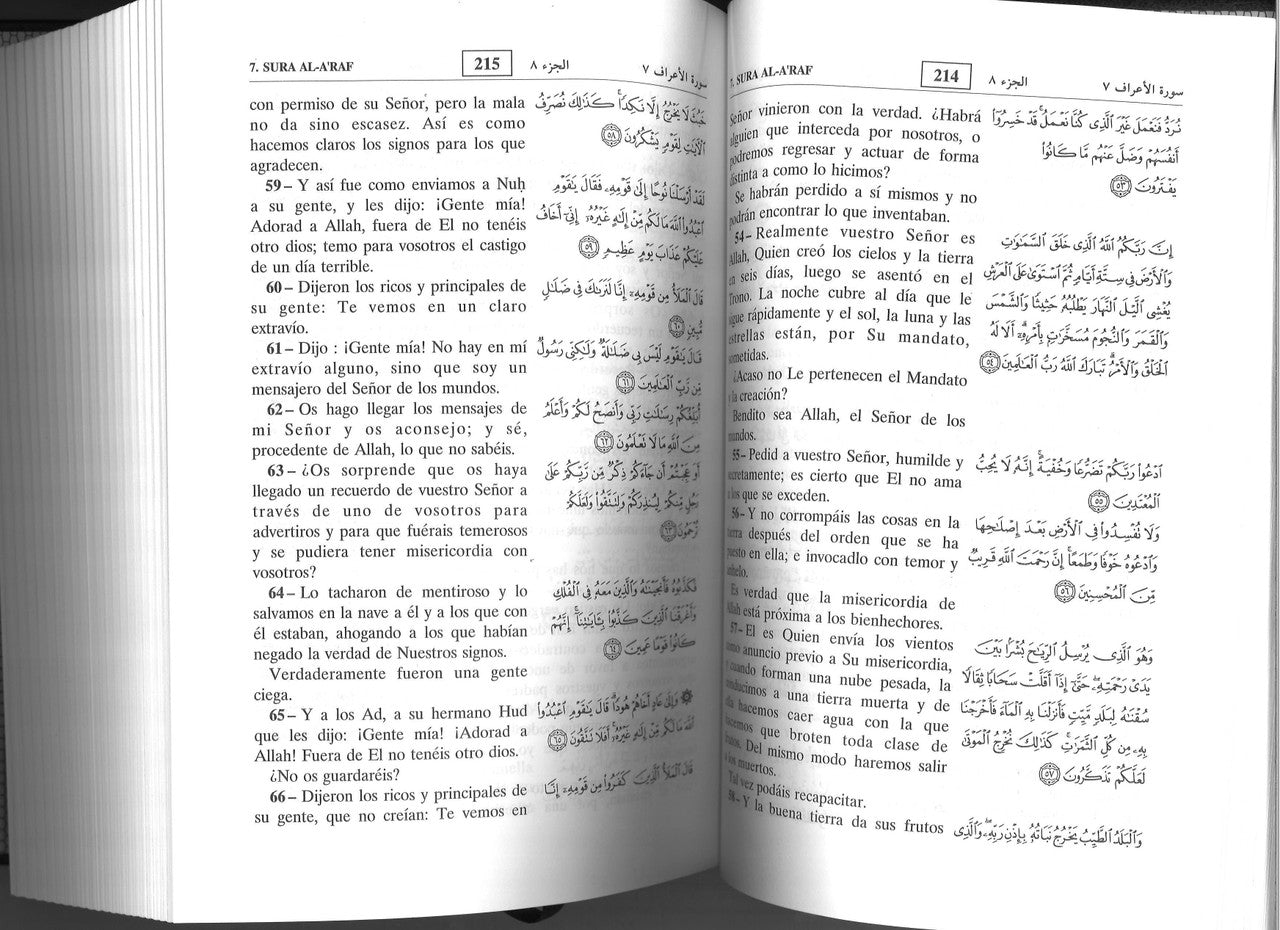 7. SURA AL-A'RAF
214
الجزء ٨
سورة الأعراف ٧
Señor vinieron con la verdad. ¿Habrá
alguien que interceda por nosotros, o
podremos regresar y actuar de forma
distinta a como lo hicimos?
Se habrán perdido a sí mismos y no
podrán encontrar lo que inventaban.
54 – Realmente vuestro Señor es
Allah, Quien creó los cielos y la tierra
en seis días, luego se asentó en el
Trono. La noche cubre al día que le
sigue rápidamente y el sol, la luna y las
estrellas están, por Su mandato,
sometidas.
¿Acaso no Le pertenecen el Mandato
y la creación?
Bendito sea Allah, el Señor de los
mundos.
55 – Pedid a vuestro Señor, humilde y
secretamente; es cierto que El no ama
a los que se exceden.
56 – Y no corrompáis las cosas en la
tierra después del orden que se ha
puesto en ella; e invocadlo con temor y
anhelo.
Es verdad que la misericordia de
Allah está próxima a los bienhechores.
57 – El es Quien envía los vientos
como anuncio previo a Su misericordia,
y cuando forman una nube pesada, la
conducimos a una tierra muerta y de
ella hacemos caer agua con la que
hacemos que broten toda clase de
frutos. Del mismo modo haremos salir
a los muertos.
Tal vez podáis recapacitar.
58 – Y la buena tierra da sus frutos
نُرَدُّ فَنَعْمَلَ غَيْرَ ٱلَّذِى كُنَّا نَعْمَلُ قَدْ خَسِرُوٓا۟
أَنفُسَهُمْ وَضَلَّ عَنْهُم مَّا كَانُوا۟
يَفْتَرُونَ ٥٣
إِنَّ رَبَّكُمُ ٱللَّهُ ٱلَّذِى خَلَقَ ٱلسَّمَٰوَٰتِ
وَٱلْأَرْضَ فِى سِتَّةِ أَيَّامٍ ثُمَّ ٱسْتَوَىٰ عَلَى ٱلْعَرْشِ
يُغْشِى ٱلَّيْلَ ٱلنَّهَارَ يَطْلُبُهُۥ حَثِيثًا وَٱلشَّمْسَ
وَٱلْقَمَرَ وَٱلنُّجُومَ مُسَخَّرَٰتٍۭ بِأَمْرِهِۦٓ أَلَا لَهُ
ٱلْخَلْقُ وَٱلْأَمْرُ تَبَارَكَ ٱللَّهُ رَبُّ ٱلْعَٰلَمِينَ ٥٤
ٱدْعُوا۟ رَبَّكُمْ تَضَرُّعًا وَخُفْيَةً إِنَّهُۥ لَا يُحِبُّ
ٱلْمُعْتَدِينَ ٥٥
وَلَا تُفْسِدُوا۟ فِى ٱلْأَرْضِ بَعْدَ إِصْلَٰحِهَا
وَٱدْعُوهُ خَوْفًا وَطَمَعًا إِنَّ رَحْمَتَ ٱللَّهِ قَرِيبٌ
مِّنَ ٱلْمُحْسِنِينَ ٥٦
وَهُوَ ٱلَّذِى يُرْسِلُ ٱلرِّيَٰحَ بُشْرًۢا بَيْنَ
يَدَىْ رَحْمَتِهِۦ حَتَّىٰٓ إِذَآ أَقَلَّتْ سَحَابًا ثِقَالًا
سُقْنَٰهُ لِبَلَدٍ مَّيِّتٍ فَأَنزَلْنَا بِهِ ٱلْمَآءَ فَأَخْرَجْنَا
بِهِۦ مِن كُلِّ ٱلثَّمَرَٰتِ كَذَٰلِكَ نُخْرِجُ ٱلْمَوْتَىٰ
لَعَلَّكُمْ تَذَكَّرُونَ ٥٧
وَٱلْبَلَدُ ٱلطَّيِّبُ يَخْرُجُ نَبَاتُهُۥ بِإِذْنِ رَبِّهِۦ وَٱلَّذِى
7. SURA AL-A'RAF
215
الجزء ٨
سورة الأعراف ٧
con permiso de su Señor, pero la mala
no da sino escasez. Así es como
hacemos claros los signos para los que
agradecen.
59 – Y así fue como enviamos a Nuḥ
a su gente, y les dijo: ¡Gente mía!
Adorad a Allah, fuera de El no tenéis
otro dios; temo para vosotros el castigo
de un día terrible.
60 – Dijeron los ricos y principales de
su gente: Te vemos en un claro
extravío.
61 – Dijo : ¡Gente mía! No hay en mí
extravío alguno, sino que soy un
mensajero del Señor de los mundos.
62 – Os hago llegar los mensajes de
mi Señor y os aconsejo; y sé,
procedente de Allah, lo que no sabéis.
63 – ¿Os sorprende que os haya
llegado un recuerdo de vuestro Señor a
través de uno de vosotros para
advertiros y para que fuérais temerosos
y se pudiera tener misericordia con
vosotros?
64 – Lo tacharon de mentiroso y lo
salvamos en la nave a él y a los que con
él estaban, ahogando a los que habían
negado la verdad de Nuestros signos.
Verdaderamente fueron una gente
ciega.
65 – Y a los Ad, a su hermano Hud
que les dijo: ¡Gente mía! ¡Adorad a
Allah! Fuera de El no tenéis otro dios.
¿No os guardaréis?
66 – Dijeron los ricos y principales de
su gente, que no creían: Te vemos en
خَبُثَ لَا يَخْرُجُ إِلَّا نَكِدًا كَذَٰلِكَ نُصَرِّفُ
ٱلْءَايَٰتِ لِقَوْمٍ يَشْكُرُونَ ٥٨
لَقَدْ أَرْسَلْنَا نُوحًا إِلَىٰ قَوْمِهِۦ فَقَالَ يَٰقَوْمِ
ٱعْبُدُوا۟ ٱللَّهَ مَا لَكُم مِّنْ إِلَٰهٍ غَيْرُهُۥٓ إِنِّىٓ أَخَافُ
عَلَيْكُمْ عَذَابَ يَوْمٍ عَظِيمٍ ٥٩
قَالَ ٱلْمَلَأُ مِن قَوْمِهِۦٓ إِنَّا لَنَرَىٰكَ فِى ضَلَٰلٍ
مُّبِينٍ ٦٠
قَالَ يَٰقَوْمِ لَيْسَ بِى ضَلَٰلَةٌ وَلَٰكِنِّى رَسُولٌ
مِّن رَّبِّ ٱلْعَٰلَمِينَ ٦١
أُبَلِّغُكُمْ رِسَٰلَٰتِ رَبِّى وَأَنصَحُ لَكُمْ وَأَعْلَمُ
مِنَ ٱللَّهِ مَا لَا تَعْلَمُونَ ٦٢
أَوَعَجِبْتُمْ أَن جَآءَكُمْ ذِكْرٌ مِّن رَّبِّكُمْ عَلَىٰ
رَجُلٍ مِّنكُمْ لِيُنذِرَكُمْ وَلِتَتَّقُوا۟ وَلَعَلَّكُمْ
تُرْحَمُونَ ٦٣
فَكَذَّبُوهُ فَأَنجَيْنَٰهُ وَٱلَّذِينَ مَعَهُۥ فِى ٱلْفُلْكِ
وَأَغْرَقْنَا ٱلَّذِينَ كَذَّبُوا۟ بِـَٔايَٰتِنَآ إِنَّهُمْ
كَانُوا۟ قَوْمًا عَمِينَ ٦٤
۞ وَإِلَىٰ عَادٍ أَخَاهُمْ هُودًا قَالَ يَٰقَوْمِ ٱعْبُدُوا۟
ٱللَّهَ مَا لَكُم مِّنْ إِلَٰهٍ غَيْرُهُۥٓ أَفَلَا تَتَّقُونَ ٦٥
قَالَ ٱلْمَلَأُ ٱلَّذِينَ كَفَرُوا۟ مِن قَوْمِهِۦٓ إِنَّا